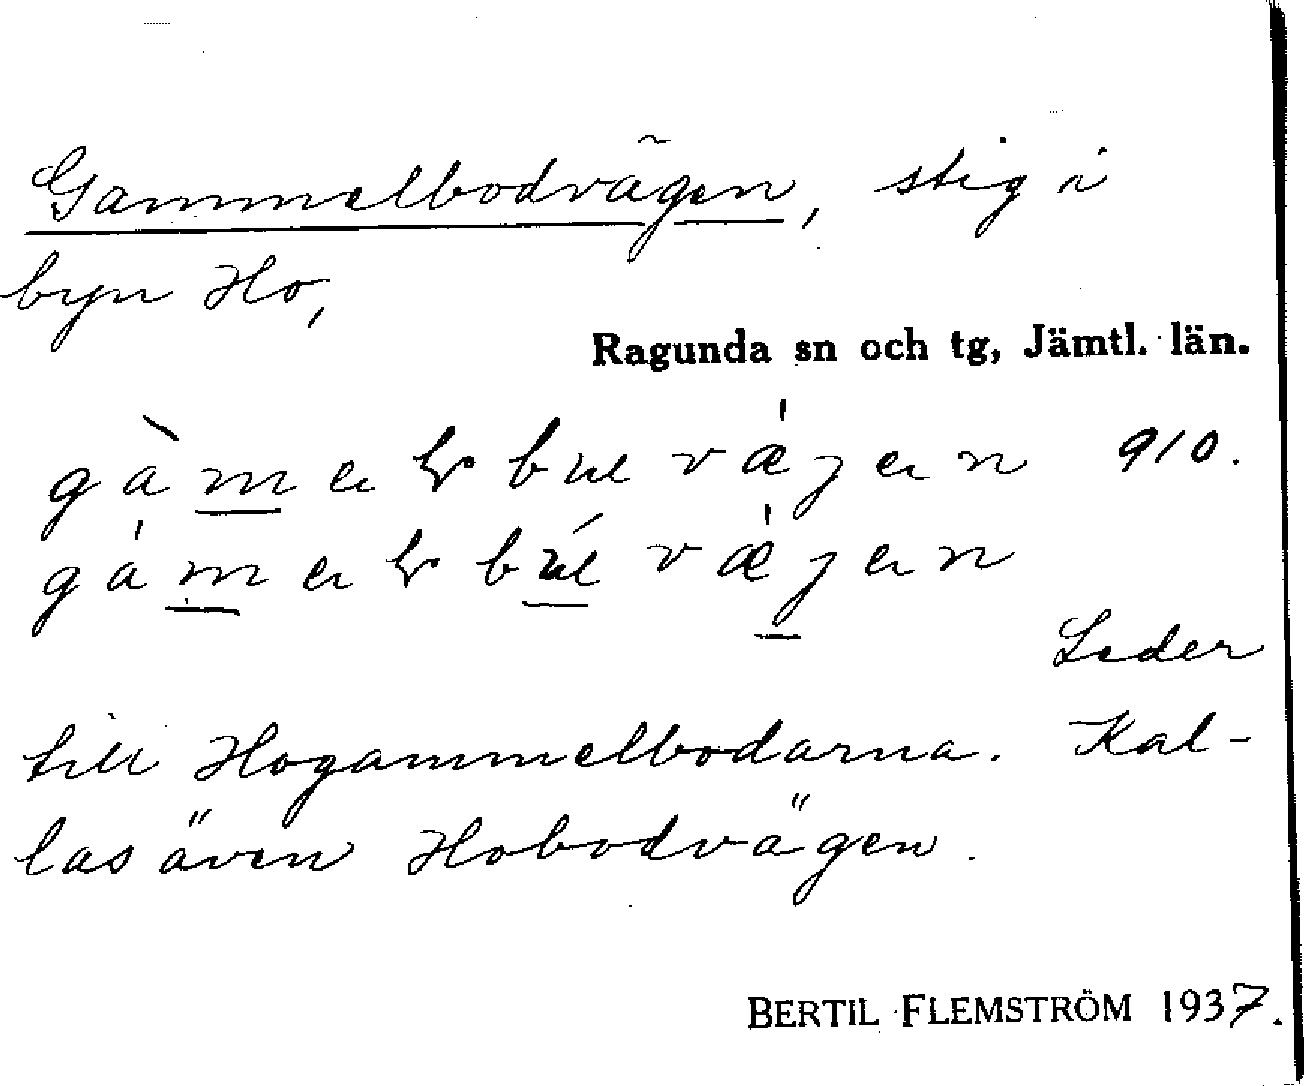 Gammelbodvägen, stig i
byn Ho,
Ragunda sn och tg, Jämtl. län.
910.
Leder
till Hogammelbodarna. Kal-
las även Hobodvägen.
BERTIL FLEMSTRÖM 1937.